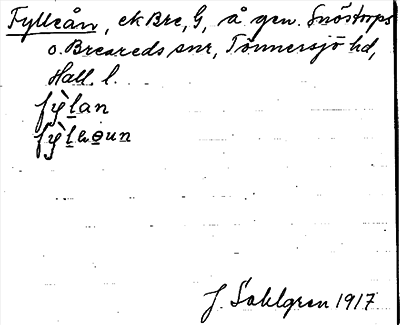 Fylleån, ek Bre, G, å gen. Snöstorps
o. Breareds snr, Tönnersjö hd,
Hall. l.
fỳl̲an
fỳl̲eo̲un
J. Sahlgren 1917